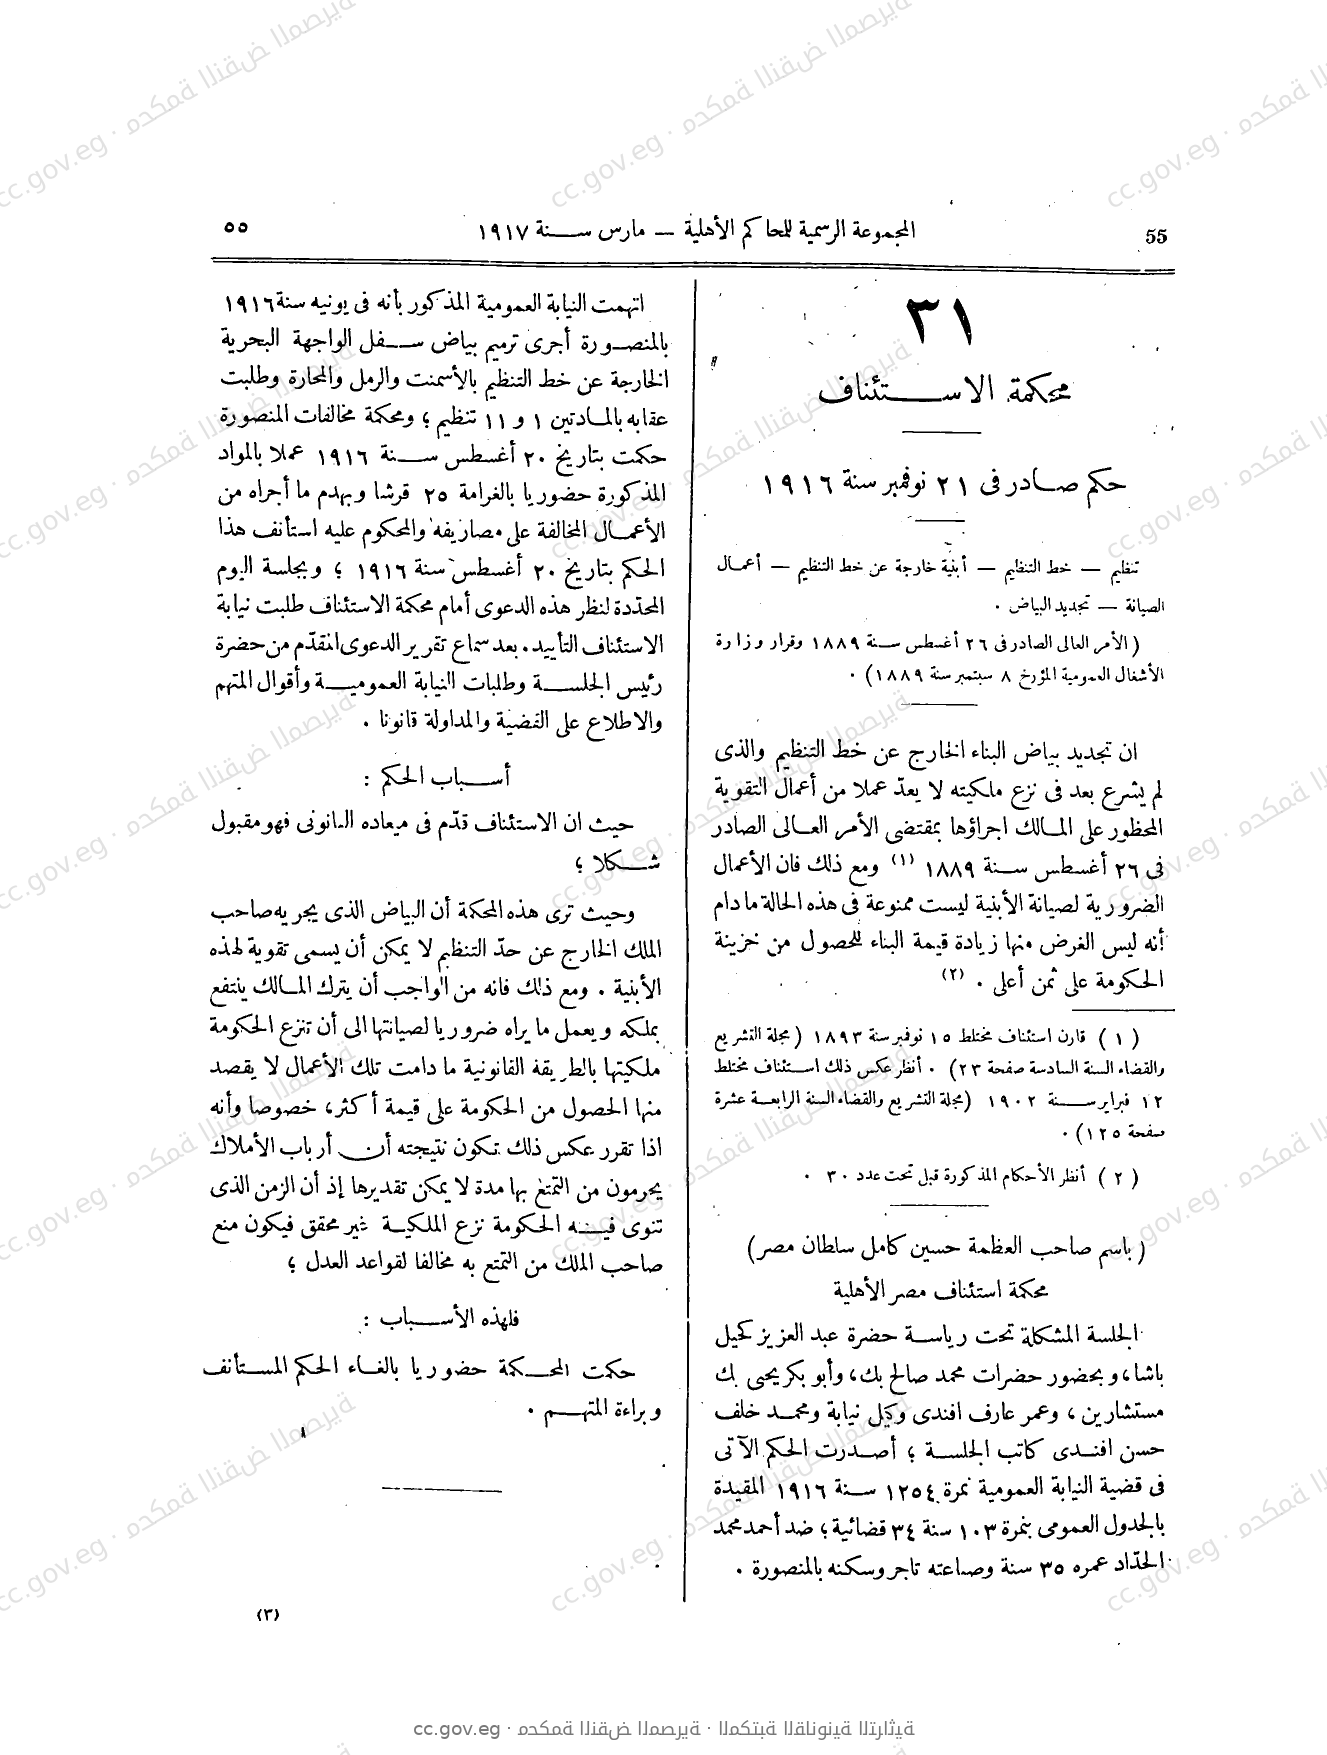 55
المجموعة الرسمية للمحاكم الأهلية — مارس سنة ١٩١٧
٥٥
٣١
محكمة الاستئناف
حكم صادر فى ٢١ نوفمبر سنة ١٩١٦
تنظيم — خط التنظيم — أبنية خارجة عن خط التنظيم — أعمال
الصيانة — تجديد البياض .
( الأمر العالى الصادر فى ٢٦ أغسطس سنة ١٨٨٩ وقرار وزارة
الأشغال العمومية المؤرخ ٨ سبتمبر سنة ١٨٨٩) .
ان تجديد بياض البناء الخارج عن خط التنظيم والذى
لم يشرع بعد فى نزع ملكيته لا يعدّ عملا من أعمال التقوية
المحظور على المالك اجراؤها بمقتضى الأمر العالى الصادر
فى ٢٦ أغسطس سنة ١٨٨٩ (١) ومع ذلك فان الأعمال
الضرورية لصيانة الأبنية ليست ممنوعة فى هذه الحالة ما دام
أنه ليس الغرض منها زيادة قيمة البناء للحصول من خزينة
الحكومة على ثمن أعلى . (٢)
(١) قارن استئناف مختلط ١٥ نوفمبر سنة ١٨٩٣ (مجلة التشريع
والقضاء السنة السادسة صفحة ٢٣) . أنظر عكس ذلك استئناف مختلط
١٢ فبراير سنة ١٩٠٢ (مجلة التشريع والقضاء السنة الرابعة عشرة
صفحة ١٢٥) .
(٢) أنظر الأحكام المذكورة قبل تحت عدد ٣٠ .
( باسم صاحب العظمة حسين كامل سلطان مصر )
محكمة استئناف مصر الأهلية
الجلسة المشكلة تحت رياسة حضرة عبد العزيز كحيل
باشا، وبحضور حضرات محمد صالح بك، وأبو بكر يحيى بك
مستشارين، وعمر عارف افندى وكيل نيابة ومحمد خلف
حسن افندى كاتب الجلسة ؛ أصدرت الحكم الآتى
فى قضية النيابة العمومية نمرة ١٢٥٤ سنة ١٩١٦ المقيدة
بالجدول العمومى بنمرة ١٠٣ سنة ٣٤ قضائية؛ ضد أحمد محمد
الحدّاد عمره ٣٥ سنة وصناعته تاجر وسكنه بالمنصورة .
اتهمت النيابة العمومية المذكور بأنه فى يونيه سنة ١٩١٦
بالمنصورة أجرى ترميم بياض سفل الواجهة البحرية
الخارجة عن خط التنظيم بالأسمنت والرمل والمحارة وطلبت
عقابه بالمادتين ١ و ١١ تنظيم ؛ ومحكمة مخالفات المنصورة
حكمت بتاريخ ٢٠ أغسطس سنة ١٩١٦ عملا بالمواد
المذكورة حضوريا بالغرامة ٢٥ قرشا وبهدم ما أجراه من
الأعمال المخالفة على مصاريفه والمحكوم عليه استأنف هذا
الحكم بتاريخ ٢٠ أغسطس سنة ١٩١٦ ؛ وبجلسة اليوم
المحدّدة لنظر هذه الدعوى أمام محكمة الاستئناف طلبت نيابة
الاستئناف التأييد. بعد سماع تقرير الدعوى المقدّم من حضرة
رئيس الجلسة وطلبات النيابة العمومية وأقوال المتهم
والاطلاع على القضية والمداولة قانونا .
أسباب الحكم :
حيث ان الاستئناف قدّم فى ميعاده القانونى فهو مقبول
شكلا ؛
وحيث ترى هذه المحكمة أن البياض الذى يجريه صاحب
الملك الخارج عن حدّ التنظيم لا يمكن أن يسمى تقوية لهذه
الأبنية . ومع ذلك فانه من الواجب أن يترك المالك ينتفع
بملكه ويعمل ما يراه ضروريا لصيانتها الى أن تنزع الحكومة
ملكيتها بالطريقة القانونية ما دامت تلك الأعمال لا يقصد
منها الحصول من الحكومة على قيمة أكثر، خصوصا وأنه
اذا تقرر عكس ذلك تكون نتيجته أن أرباب الأملاك
يحرمون من التمتع بها مدة لا يمكن تقديرها إذ أن الزمن الذى
تنوى فيه الحكومة نزع الملكية غير محقق فيكون منع
صاحب الملك من التمتع به مخالفا لقواعد العدل ؛
فلهذه الأسباب :
حكمت المحكمة حضوريا بالغاء الحكم المستأنف
وبراءة المتهم .
(٣)
cc.gov.eg · محكمة النقض المصرية · المكتبة القانونية التراثية